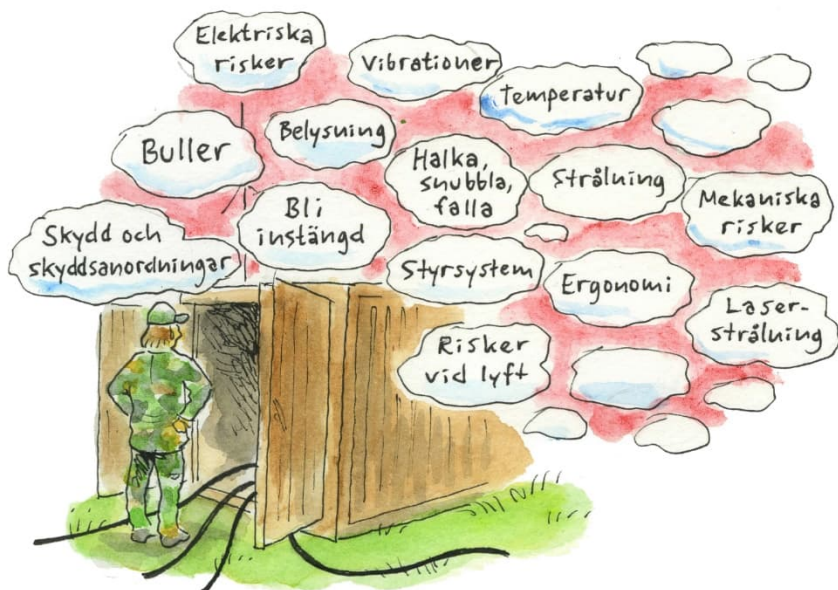 Elektriska
risker
Vibrationer
Temperatur
Buller
Belysning
Halka,
snubbla,
falla
Strålning
Mekaniska
risker
Skydd och
skyddsanordningar
Bli
instängd
Styrsystem
Ergonomi
Laser-
strålning
Risker
vid lyft